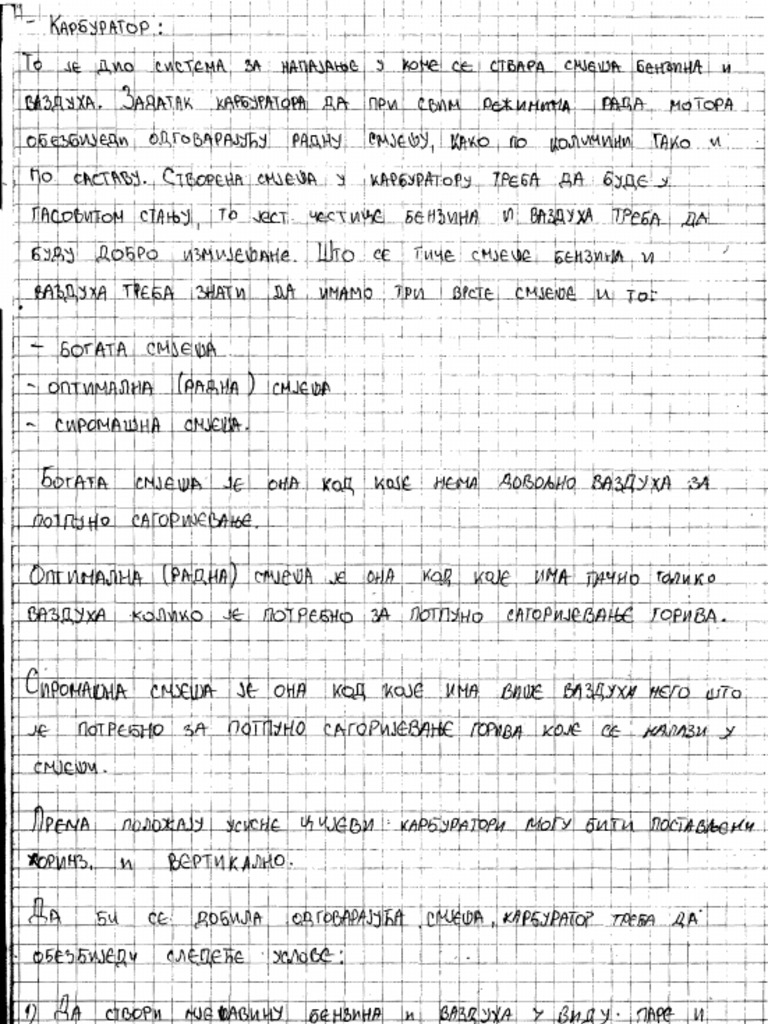 - КАРБУРАТОР:
ТО ЈЕ ДИО СИСТЕМА ЗА НАПАЈАЊЕ У КОМЕ СЕ СТВАРА СМЈЕША БЕНЗИНА И
ВАЗДУХА. ЗАДАТАК КАРБУРАТОРА ДА ПРИ СВИМ РЕЖИМИМА РАДА МОТОРА
ОБЕЗБИЈЕДИ ОДГОВАРАЈУЋУ РАДНУ СМЈЕШУ, КАКО ПО КОЛИЧИНИ ТАКО И
ПО САСТАВУ. СТВОРЕНА СМЈЕША У КАРБУРАТОРУ ТРЕБА ДА БУДЕ У
ГАСОВИТОМ СТАЊУ, ТО ЈЕСТ. ЧЕСТИЦЕ БЕНЗИНА И ВАЗДУХА ТРЕБА ДА
БУДУ ДОБРО ИЗМИЈЕШАНЕ. ШТО СЕ ТИЧЕ СМЈЕШЕ БЕНЗИНА И
ВАЗДУХА ТРЕБА ЗНАТИ ДА ИМАМО ТРИ ВРСТЕ СМЈЕШЕ И ТО:
- БОГАТА СМЈЕША
- ОПТИМАЛНА (РАДНА) СМЈЕША
- СИРОМАШНА СМЈЕША.
БОГАТА СМЈЕША ЈЕ ОНА КОД КОЈЕ НЕМА ДОВОЉНО ВАЗДУХА ЗА
ПОТПУНО САГОРИЈЕВАЊЕ.
ОПТИМАЛНА (РАДНА) СМЈЕША ЈЕ ОНА КОД КОЈЕ ИМА ТАЧНО ТОЛИКО
ВАЗДУХА КОЛИКО ЈЕ ПОТРЕБНО ЗА ПОТПУНО САГОРИЈЕВАЊЕ ГОРИВА.
СИРОМАШНА СМЈЕША ЈЕ ОНА КОД КОЈЕ ИМА ВИШЕ ВАЗДУХА НЕГО ШТО
ЈЕ ПОТРЕБНО ЗА ПОТПУНО САГОРИЈЕВАЊЕ ГОРИВА КОЈЕ СЕ НАЛАЗИ У
СМЈЕШИ.
ПРЕМА ПОЛОЖАЈУ УСИСНЕ ЦИЈЕВИ КАРБУРАТОРИ МОГУ БИТИ ПОСТАВЉЕНИ
ХОРИНЗ. И ВЕРТИКАЛНО.
ДА БИ СЕ ДОБИЛА ОДГОВАРАЈУЋА СМЈЕША, КАРБУРАТОР ТРЕБА ДА
ОБЕЗБИЈЕДИ СЛЕДЕЋЕ УСЛОВЕ:
1) ДА СТВОРИ МЈЕШАВИНУ БЕНЗИНА И ВАЗДУХА У ВИДУ ПАРЕ И